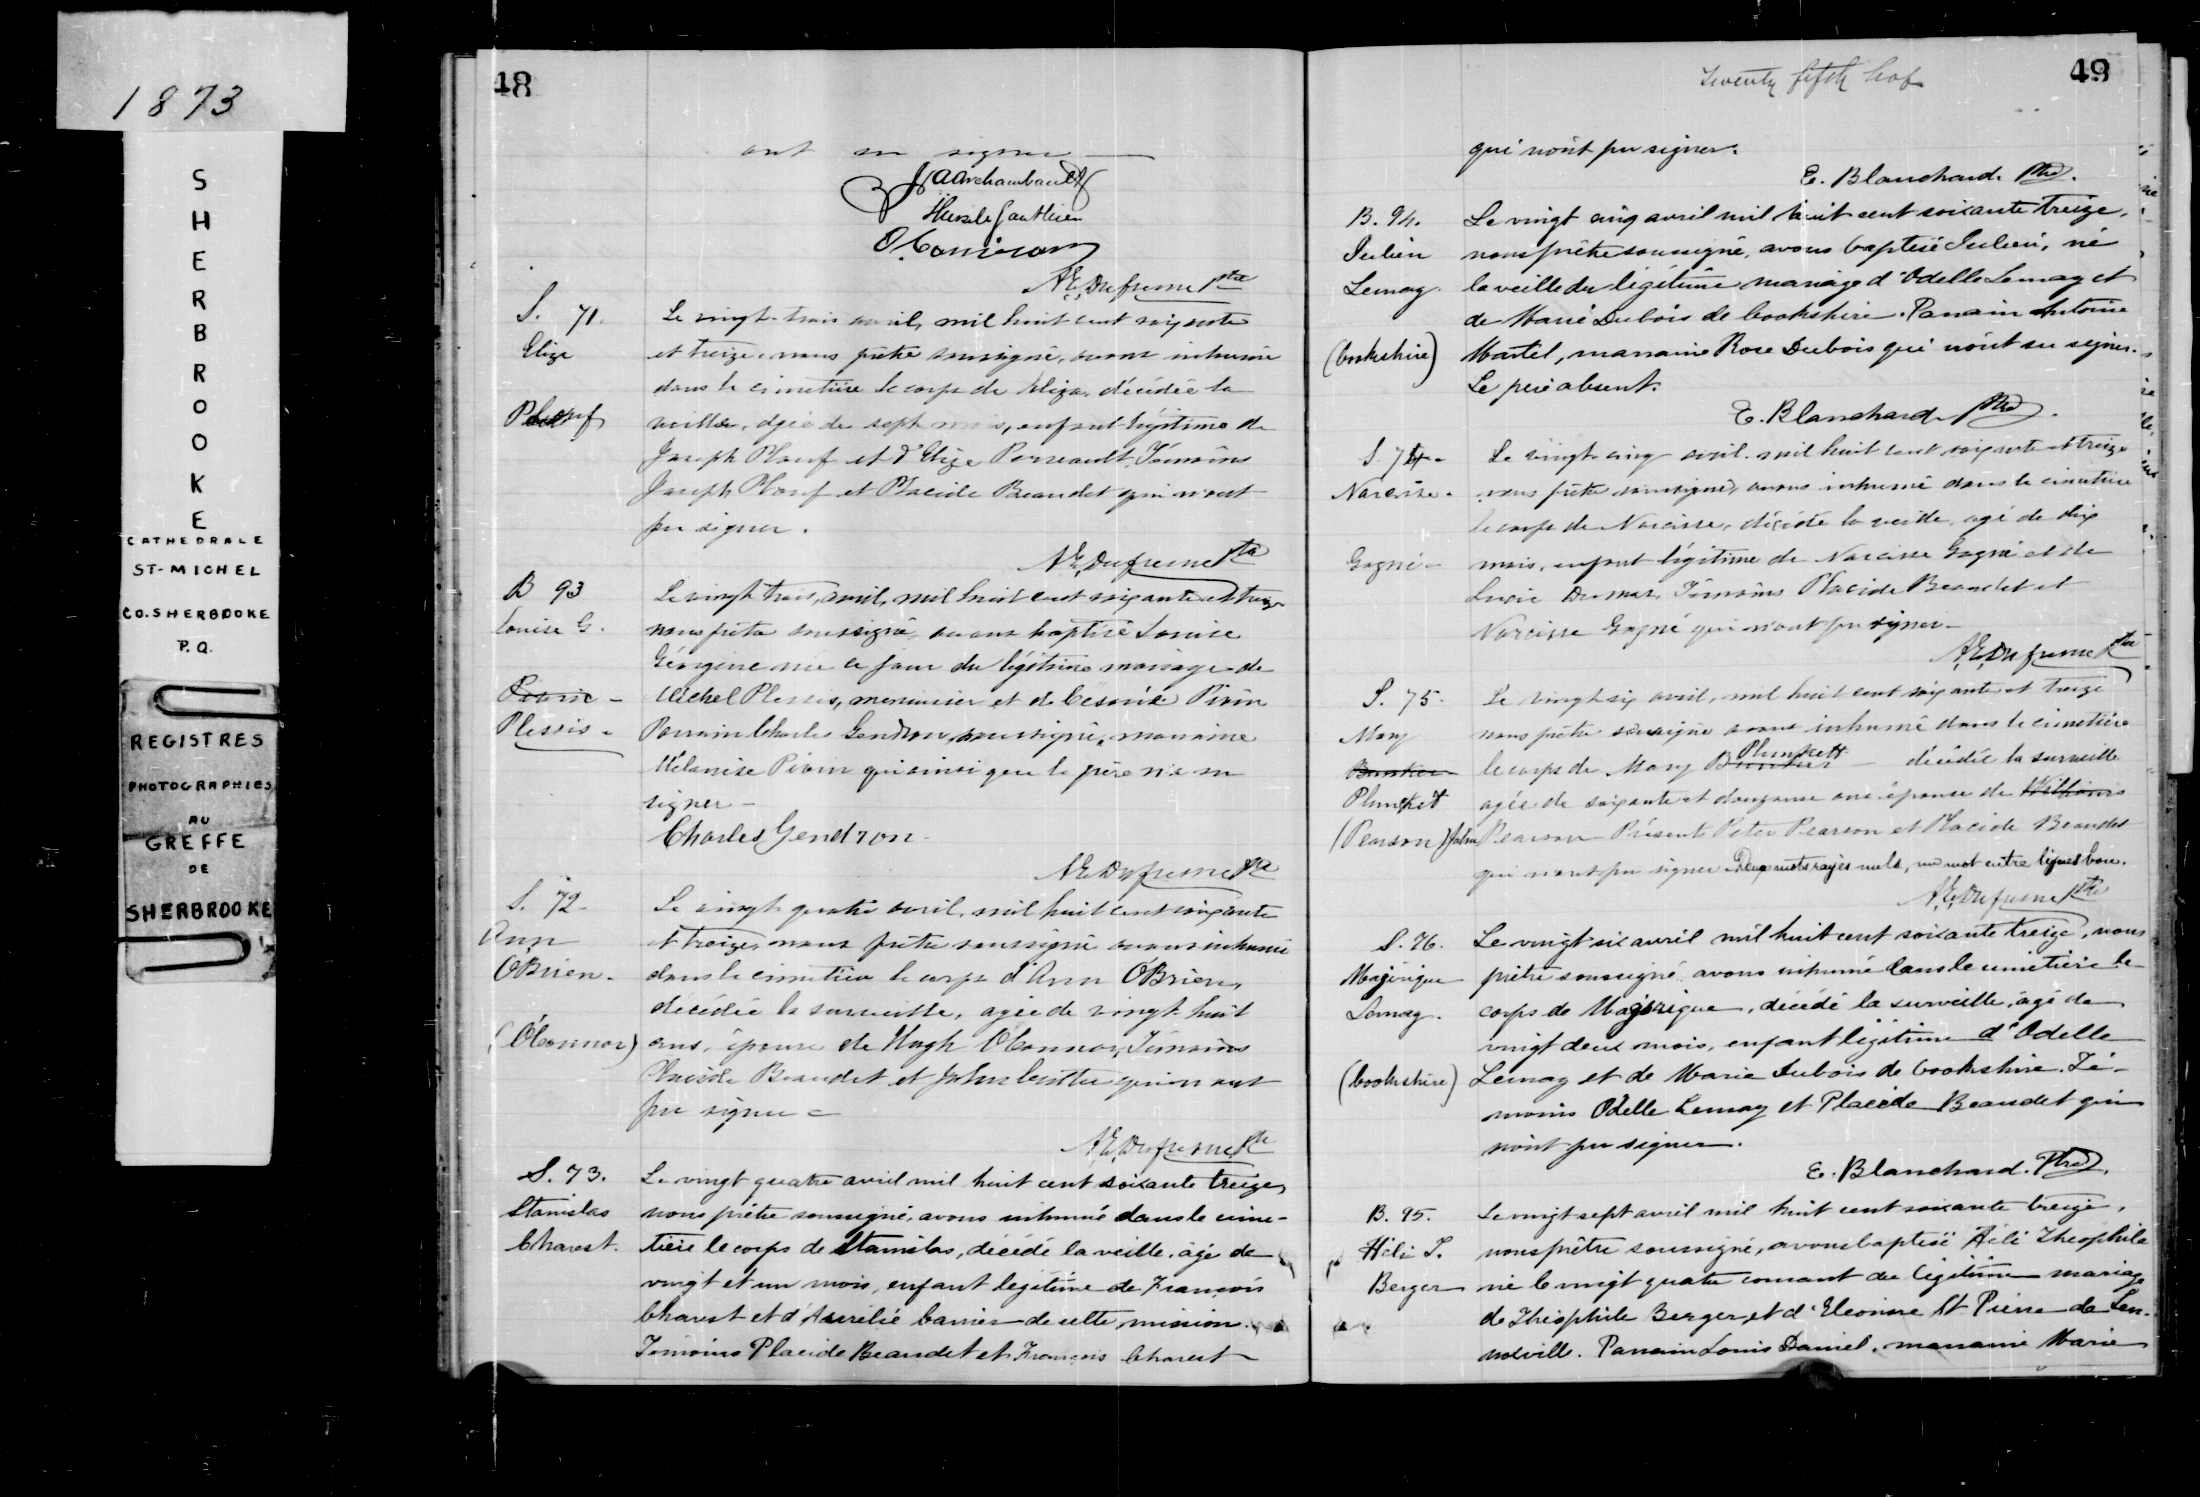 1873
SHERBROOKE
CATHEDRALE
ST-MICHEL
CO.SHERBROOKE
P.Q.
REGISTRES
PHOTOGRAPHIES
AU
GREFFE
DE
SHERBROOKE
48
ont su signer
JA Archambault
Gauthier
O. Camirand
A.E. Dufresne Ptre
S. 71.
Eliza
Plouf
Le vingt-trois avril, mil huit cent soixante
et treize, nous prêtre soussigné, avons inhumé
dans le cimetière le corps de Eliza, décédée la
veille, agée de sept mois, enfant légitime de
Joseph Plouf et d'Eliza Perreault, Témoins
Joseph Plouf et Placide Beaudet qui n'ont
pu signer.
A.E. Dufresne Ptre
B 93
Louise G.
Plessis -
Le vingt trois, avril, mil huit cent soixante et treize
nous prêtre soussigné, avons baptisé Louise
Géorgine née ce jour du légitime mariage de
Michel Plessis, menuisier et de Césarie Pivin
Parrain Charles Gendron, soussigné, marraine
Mélanise Pivin qui ainsi que le père n'a su
signer -
Charles Gendron
A.E. Dufresne Ptre
S. 72 -
Ann
O'Brien -
(O'Connor)
Le vingt quatre avril, mil huit cent soixante
et treize, nous prêtre soussigné avons inhumé
dans le cimetière le corps d'Ann O'Brien,
décédée la surveille, agée de vingt huit
ans, épouse de Hugh O'Connor, Témoins
Placide Beaudet et John qui n'ont
pu signer =
A.E. Dufresne Ptre
S. 73.
Stanislas
Charest.
Le vingt quatre avril mil huit cent soixante treize,
nous prêtre soussigné, avons inhumé dans le cime-
tière le corps de Stanislas, décédé la veille, âgé de
vingt et un mois, enfant légitime de François
Charest et d'Aurélie de cette mission.
Témoins Placide Beaudet et François Charest
49
Twenty fifth leaf
qui n'ont pu signer.
E. Blanchard. Ptre.
B. 94.
Julien
Lemay.
(Cookshire)
Le vingt cinq avril mil huit cent soixante treize,
nous prêtre soussigné, avons baptisé Julien, né
la veille du légitime mariage d'Odelle Lemay et
de Marie Dubois de Cookshire. Parrain Antoine
Martel, marraine Rose Dubois qui n'ont su signer.
Le père absent.
E. Blanchard Ptre.
S. 74 -
Narcisse -
Gagné -
Le vingt-cinq avril. mil huit cent soixante et treize
nous prêtre soussigné, avons inhumé dans le cimetière
le corps de Narcisse, décédé la veille, agé de dix
mois, enfant légitime de Narcisse Gagné et de
Lucie Dumas, Témoins Placide Beaudet et
Narcisse Gagné qui n'ont pu signer -
A.E. Dufresne Ptre
S. 75.
Mary
Plunkett
(Pearson)
Le vingt six avril, mil huit cent soixante et treize
nous prêtre soussigné avons inhumé dans le cimetière
le corps de Mary Plunkett décédée la surveille
agée de soixante et douze ans épouse de William
John Pearson Présents Peter Pearson et Placide Beaudet
qui n'ont pu signer Deux mots rayés nuls, un mot entre lignes bon.
A.E. Dufresne Ptre
S. 76.
Magérique
Lemay.
(Cookshire)
Le vingt six avril mil huit cent soixante treize, nous
prêtre soussigné avons inhumé dans le cimetière le
corps de Magérique, décédé la surveille, âgé de
vingt deux mois, enfant légitime d'Odelle
Lemay et de Marie Dubois de Cookshire. Té-
moins Odelle Lemay et Placide Beaudet qui
n'ont pu signer.
E. Blanchard. Ptre.
B. 95.
Héli T.
Berger
Le vingt sept avril mil huit cent soixante treize,
nous prêtre soussigné, avons baptisé Héli Théophile
né le vingt quatre courant du légitime mariage
de Théophile Berger et d'Eleonore St Pierre de Len-
noxville. Parrain Louis Daniel, marraine Marie